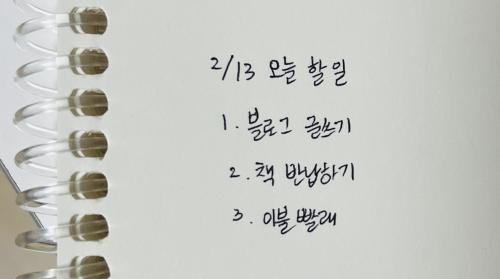 2/13 오늘 할 일
1. 블로그 글쓰기
2. 책 반납하기
3. 이불 빨래